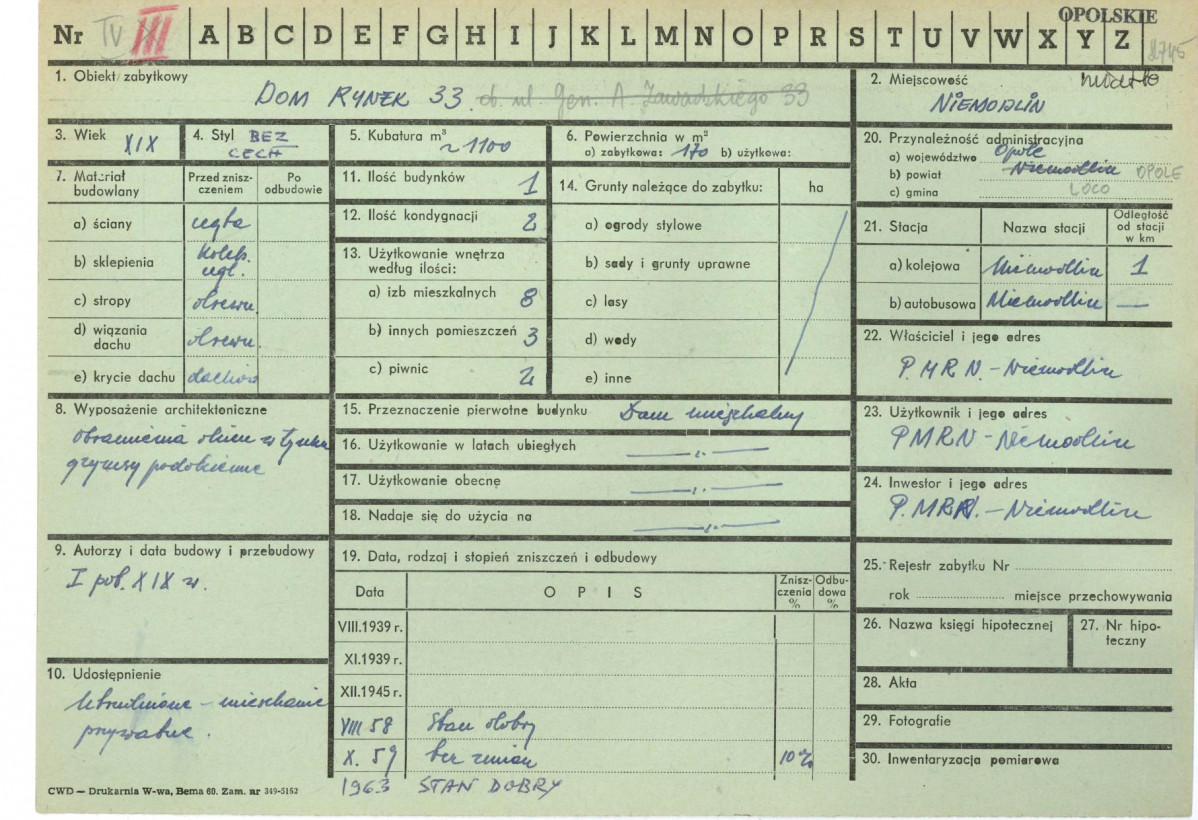 OPOLSKIE
Nr IV III A B C D E F G H I J K L M N O P R S T U V W X Y Z
2745
1. Obiekt zabytkowy
DOM RYNEK 33. d. ul. Gen. A. Zawadzkiego 33
2. Miejscowość miasto
NIEMODLIN
3. Wiek XIX
4. Styl BEZ
CECH
5. Kubatura m³
~ 1100
6. Powierzchnia w m²
a) zabytkowa: 170 b) użytkowa:
20. Przynależność administracyjna
a) województwo Opole
b) powiat Niemodlin OPOLE
c) gmina LOCO
7. Materiał budowlany
Przed zniszczeniem
Po odbudowie
a) ściany cegła
b) sklepienia koleb.
cegl.
c) stropy drewn.
d) wiązania dachu drewn.
e) krycie dachu dachów
11. Ilość budynków 1
12. Ilość kondygnacji 2
13. Użytkowanie wnętrza
według ilości:
a) izb mieszkalnych 8
b) innych pomieszczeń 3
c) piwnic 2
14. Grunty należące do zabytku: ha
a) ogrody stylowe
b) sady i grunty uprawne
c) lasy
d) wody
e) inne
21. Stacja Nazwa stacji Odległość
od stacji
w km
a) kolejowa Niemodlin 1
b) autobusowa Niemodlin —
22. Właściciel i jego adres
P.M.R.N. - Niemodlin
8. Wyposażenie architektoniczne
obramienia okien w tynku
gzymsy podokienne
15. Przeznaczenie pierwotne budynku Dom mieszkalny
16. Użytkowanie w latach ubiegłych —„—
17. Użytkowanie obecnę —„—
18. Nadaje się do użycia na —„—
23. Użytkownik i jego adres
PMRN - Niemodlin
24. Inwestor i jego adres
P.MRN. - Niemodlin
9. Autorzy i data budowy i przebudowy
I poł. XIX w.
19. Data, rodzaj i stopień zniszczeń i odbudowy
Data OPIS Zniszczenia % Odbudowa %
VIII.1939 r.
XI.1939 r.
XII.1945 r.
VIII 58 Stan dobry
X. 59 bez zmian 10%
1963 STAN DOBRY
25. Rejestr zabytku Nr
rok miejsce przechowywania
26. Nazwa księgi hipotecznej
27. Nr hipoteczny
28. Akta
29. Fotografie
30. Inwentaryzacja pomiarowa
10. Udostępnienie
Utrudnione - mieszkanie
prywatne.
CWD — Drukarnia W-wa, Bema 60. Zam. nr 349-5162